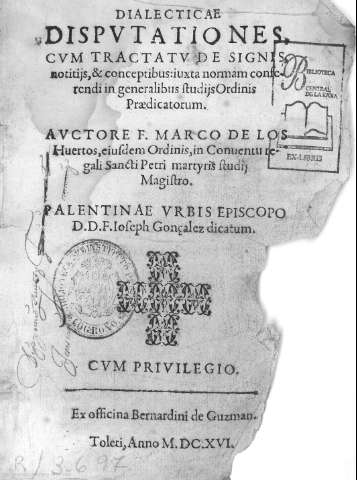 DIALECTICAE
DISPVTATIONES,
CVM TRACTATV DE SIGNIS,
notitijs, & conceptibus: iuxta normam confe-
rendi in generalibus studijs Ordinis
Prædicatorum.
AVCTORE F. MARCO DE LOS
Huertos, eiusdem Ordinis, in Conuentu re-
gali Sancti Petri martyris studij
Magistro.
PALENTINAE VRBIS EPISCOPO
D.D.F. Ioseph Gonçalez dicatum.
CVM PRIVILEGIO.
Ex officina Bernardini de Guzman.
Toleti, Anno M.DC.XVI.
R/ 3-697
BIBLIOTECA
CENTRAL
EX-LIBRIS
LOGROÑO